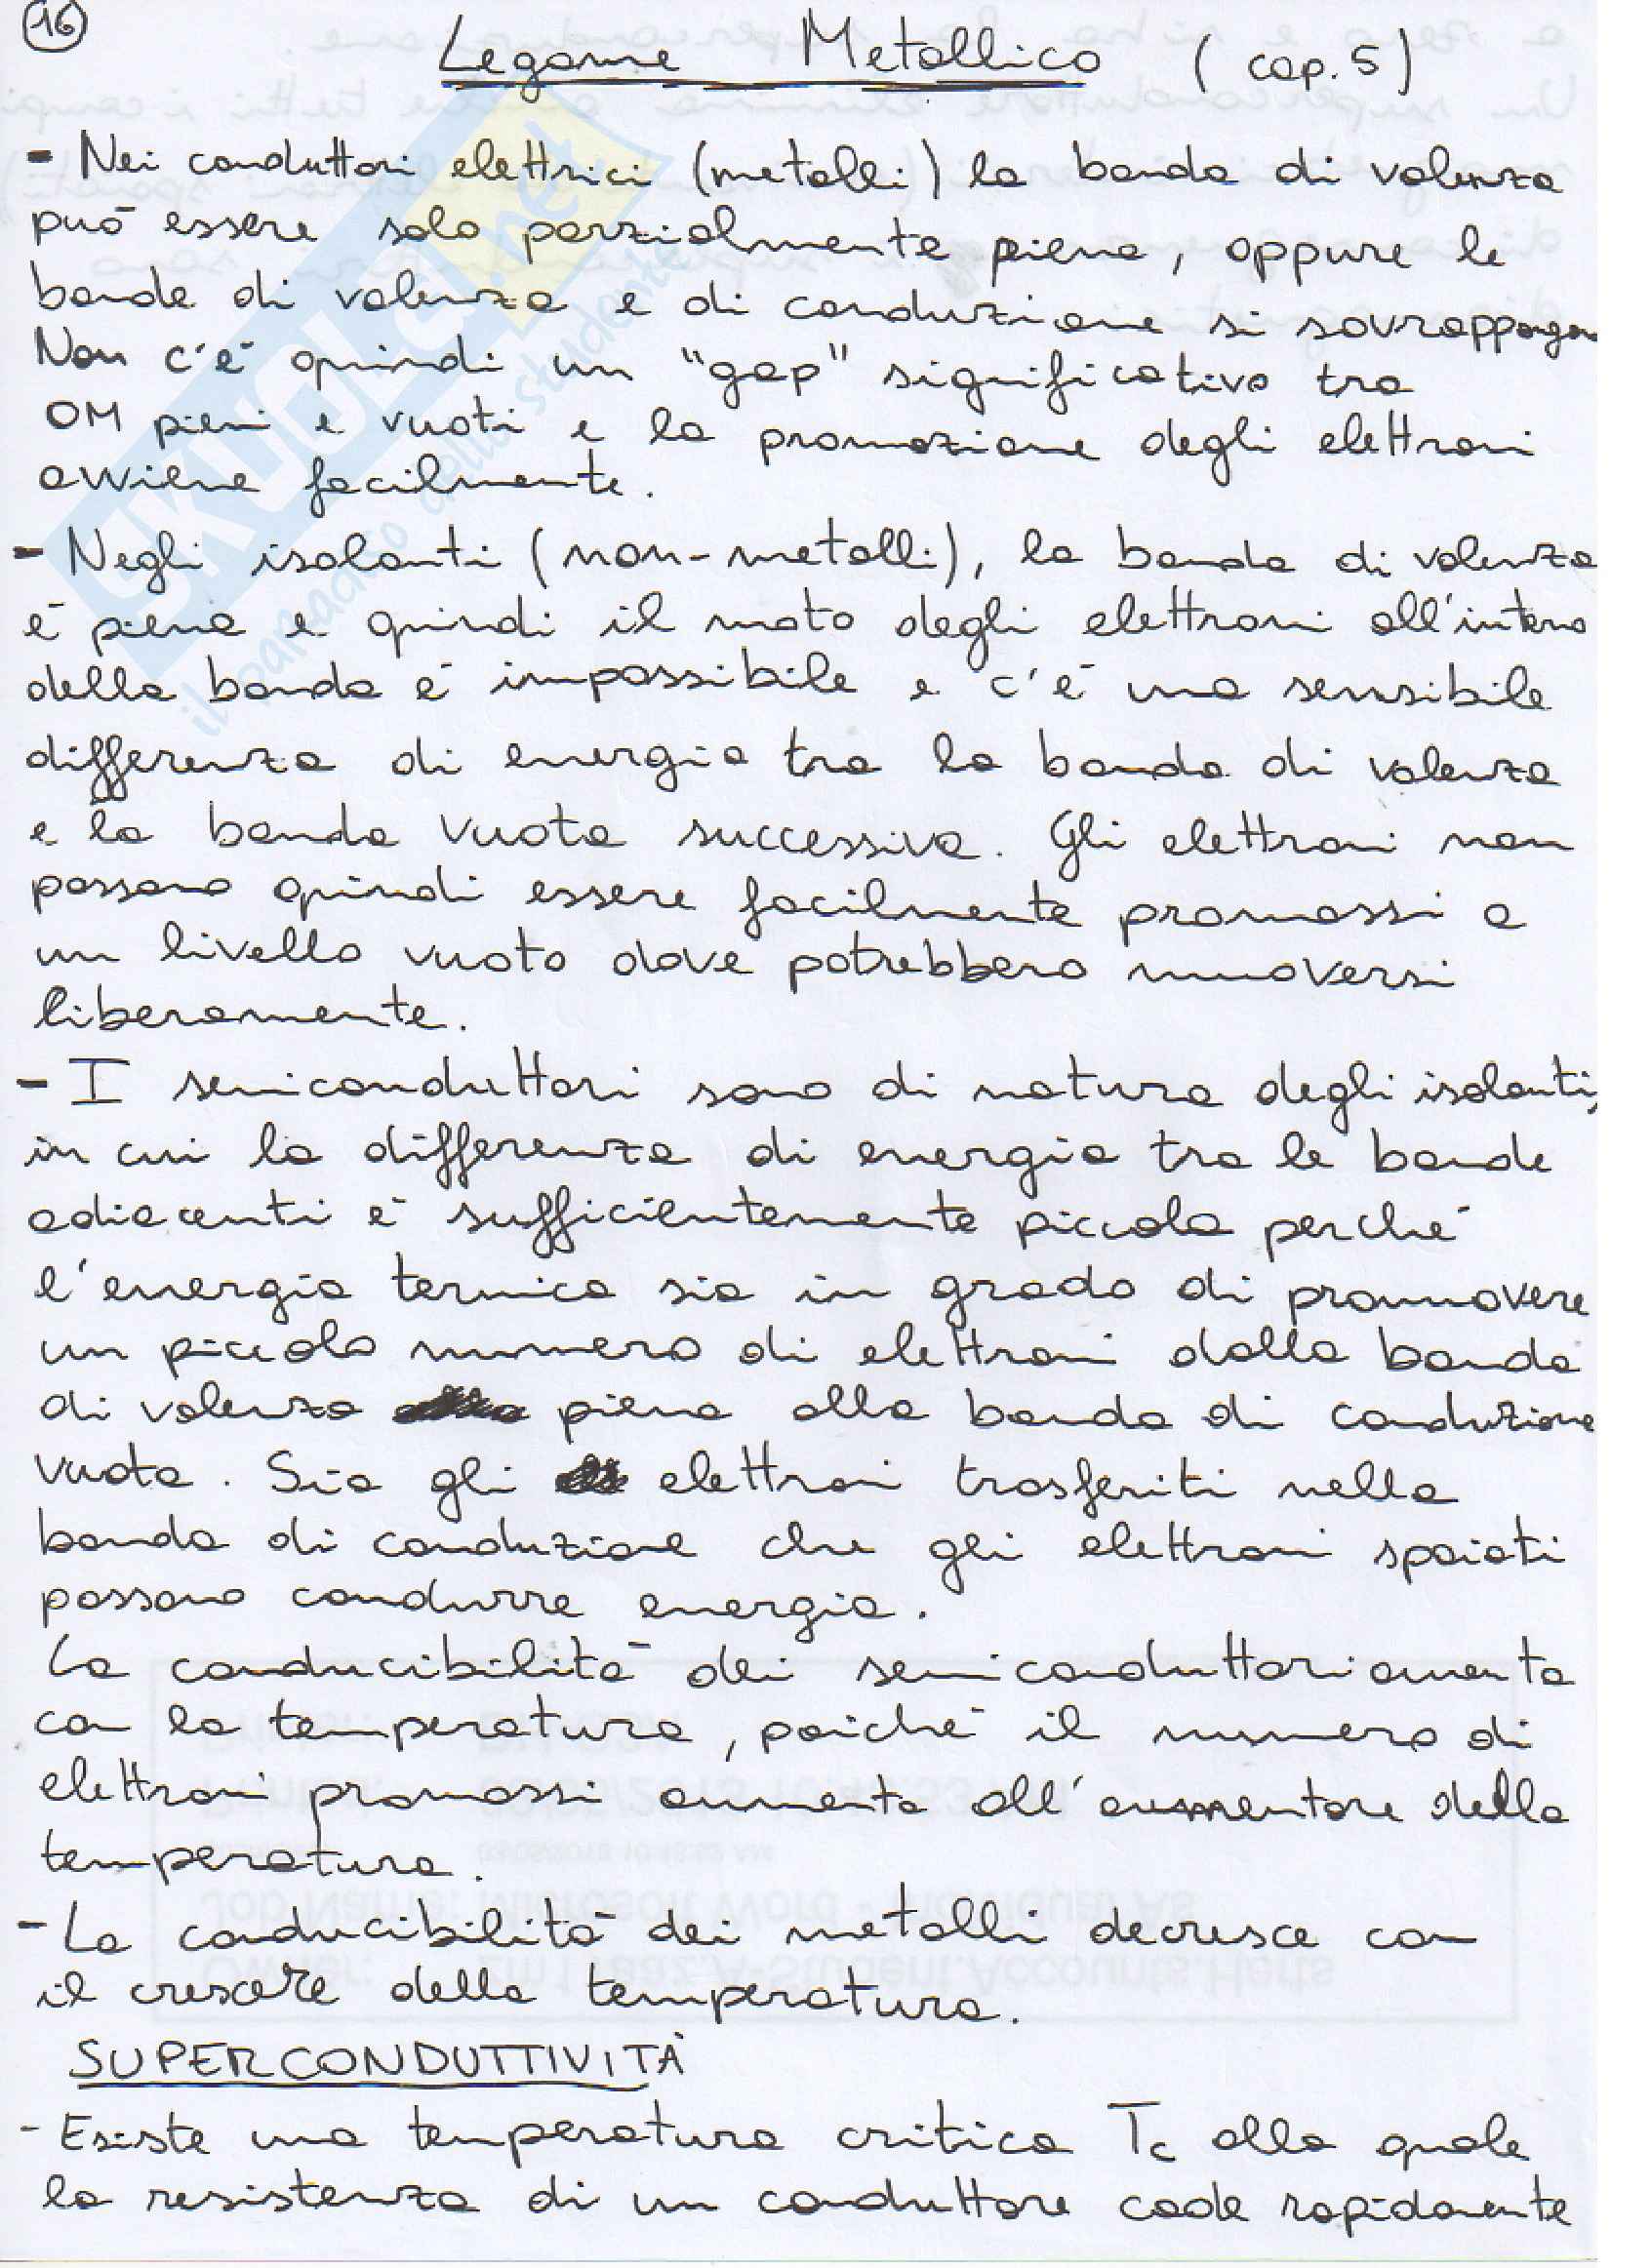 16
Legame Metallico (cap. 5)
- Nei conduttori elettrici (metalli) la banda di valenza
può essere solo parzialmente piena, oppure le
bande di valenza e di conduzione si sovrappongon
Non c'è quindi un "gap" significativo tra
OM pieni e vuoti e la promozione degli elettroni
avviene facilmente.
- Negli isolanti (non-metalli), la banda di valenza
è piena e quindi il moto degli elettroni all'interno
della banda è impossibile e c'è una sensibile
differenza di energia tra la banda di valenza
e la banda vuota successiva. Gli elettroni non
possono quindi essere facilmente promossi a
un livello vuoto dove potrebbero muoversi
liberamente.
- I semiconduttori sono di natura degli isolanti,
in cui la differenza di energia tra le bande
adiacenti è sufficientemente piccola perché
l'energia termica sia in grado di promuovere
un piccolo numero di elettroni dalla banda
di valenza piena alla banda di conduzione
vuota. Sia gli elettroni trasferiti nella
banda di conduzione che gli elettroni spaiati
possono condurre energia.
La conducibilità dei semiconduttori aumenta
con la temperatura, poiché il numero di
elettroni promossi aumenta all'aumentare della
temperatura.
- La conducibilità dei metalli decresce con
il crescere della temperatura.
SUPERCONDUTTIVITÀ
- Esiste una temperatura critica Tc alla quale
la resistenza di un conduttore cade rapidamente
SKUOLA.net
il paradiso dello studente